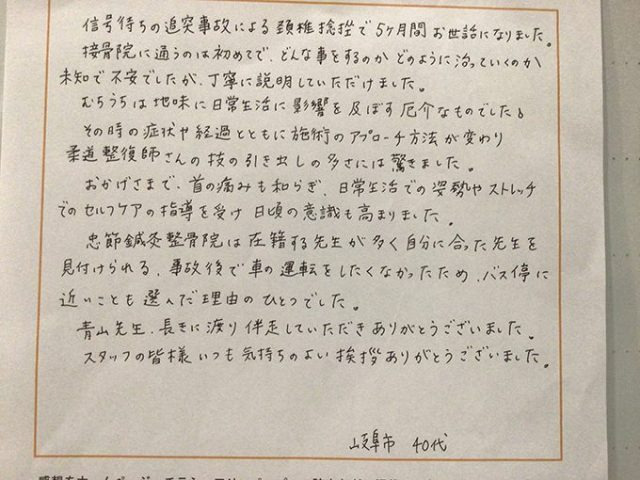 信号待ちの追突事故による頚椎捻挫で5ケ月間お世話になりました。
接骨院に通うのは初めてで、どんな事をするのかどのように治っていくのか
未知で不安でしたが、丁寧に説明していただけました。
むちうちは地味に日常生活に影響を及ぼす厄介なものでした。
その時の症状や経過とともに施術のアプローチ方法が変わり
柔道整復師さんの技の引き出しの多さには驚きました。
おかげさまで、首の痛みも和らぎ、日常生活での姿勢やストレッチ
でのセルフケアの指導を受け日頃の意識も高まりました。
忠節鍼灸整骨院は在籍する先生が多く自分に合った先生を
見付けられる、事故後で車の運転をしたくなかったため、バス停に
近いことも選んだ理由のひとつでした。
青山先生、長きに渡り伴走していただきありがとうございました。
スタッフの皆様いつも気持ちのよい挨拶ありがとうございました。
岐阜市 40代